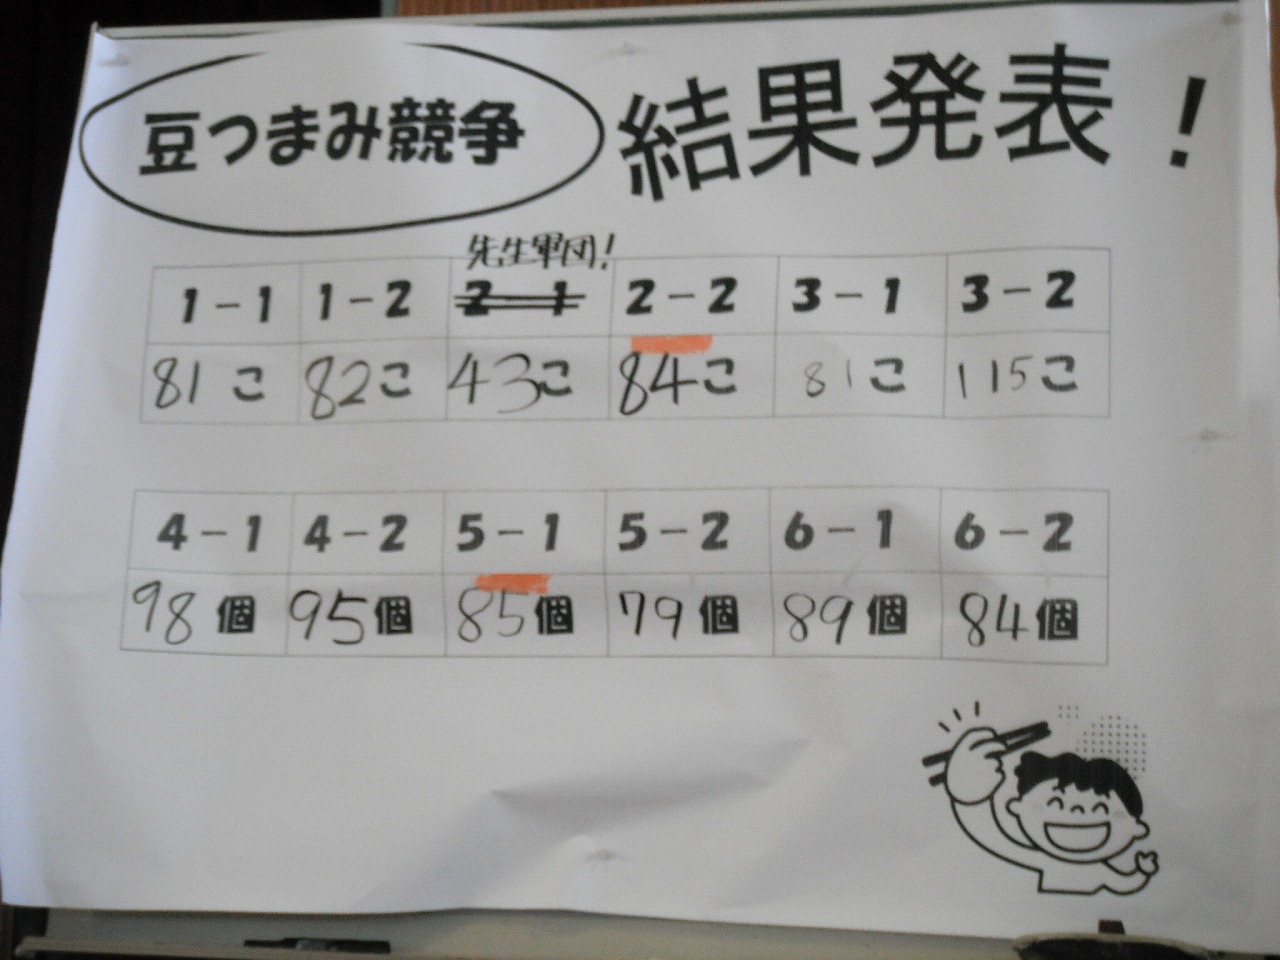 豆つまみ競争 結果発表！
先生軍団！
1－1 1－2 2－1 2－2 3－1 3－2
81こ 82こ 43こ 84こ 81こ 115こ
4－1 4－2 5－1 5－2 6－1 6－2
98個 95個 85個 79個 89個 84個